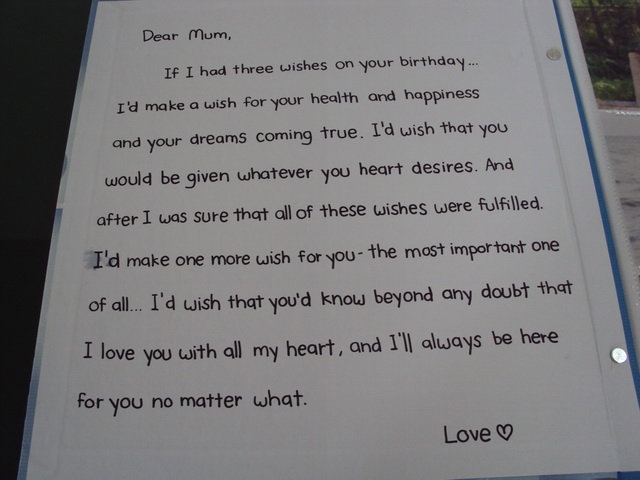 Dear Mum,
If I had three wishes on your birthday...
I'd make a wish for your health and happiness
and your dreams coming true. I'd wish that you
would be given whatever you heart desires. And
after I was sure that all of these wishes were fulfilled.
I'd make one more wish for you - the most important one
of all... I'd wish that you'd know beyond any doubt that
I love you with all my heart, and I'll always be here
for you no matter what.
Love ♡